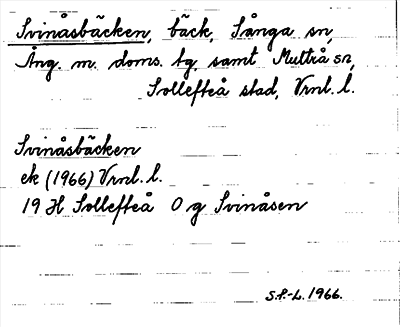 Svinåsbäcken, bäck, Sånga sn,
Ång. m. doms. tg samt Multrå sn,
Sollefteå stad, Vrnl. l.
Svinåsbäcken
ek (1966) Vrnl. l.
19 H Sollefteå 0 g Svinåsen
S.P.-L. 1966.